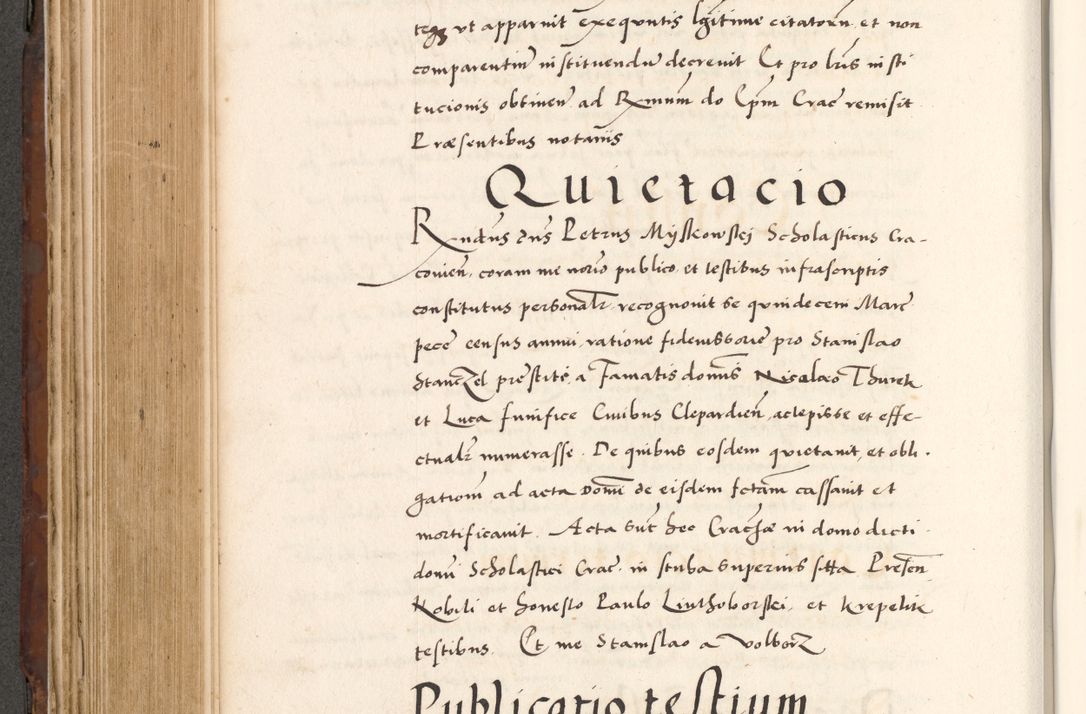 ut apparuit exequutis lgitime citatorum et non
comparentium instituendum decrevit Et pro lris insti
tucionis obtinen ad Rmum do Epm Crac remisit
Præsentibus notariis
Quietacio
Rndus dns Petrus Myskowskj Scholasticus Cra-
covien. coram me norio publico et testibus infrascriptis
constitutus personalr recognovit se quindecem Marc
pece census annui ratione fideiussorie pro Stanislao
Stanczel prestite a Famatis domis Nicolao Thurek
et Luca funifice Civibus Clepardien accepisse et effe-
ctualr numerasse. De quibus eosdem quietavit et obli-
gationem ad acta domi de eisdem fctam cassavit et
mortificavit. Acta sut hec Craciæ in domo dicti
domi Scholastici Crac. in stuba superius sitta Presen
Nobili et honesto Paulo Liuthoborskj et Krepelik
testibus. Et me Stanislao a Volborz
Publicatio testium